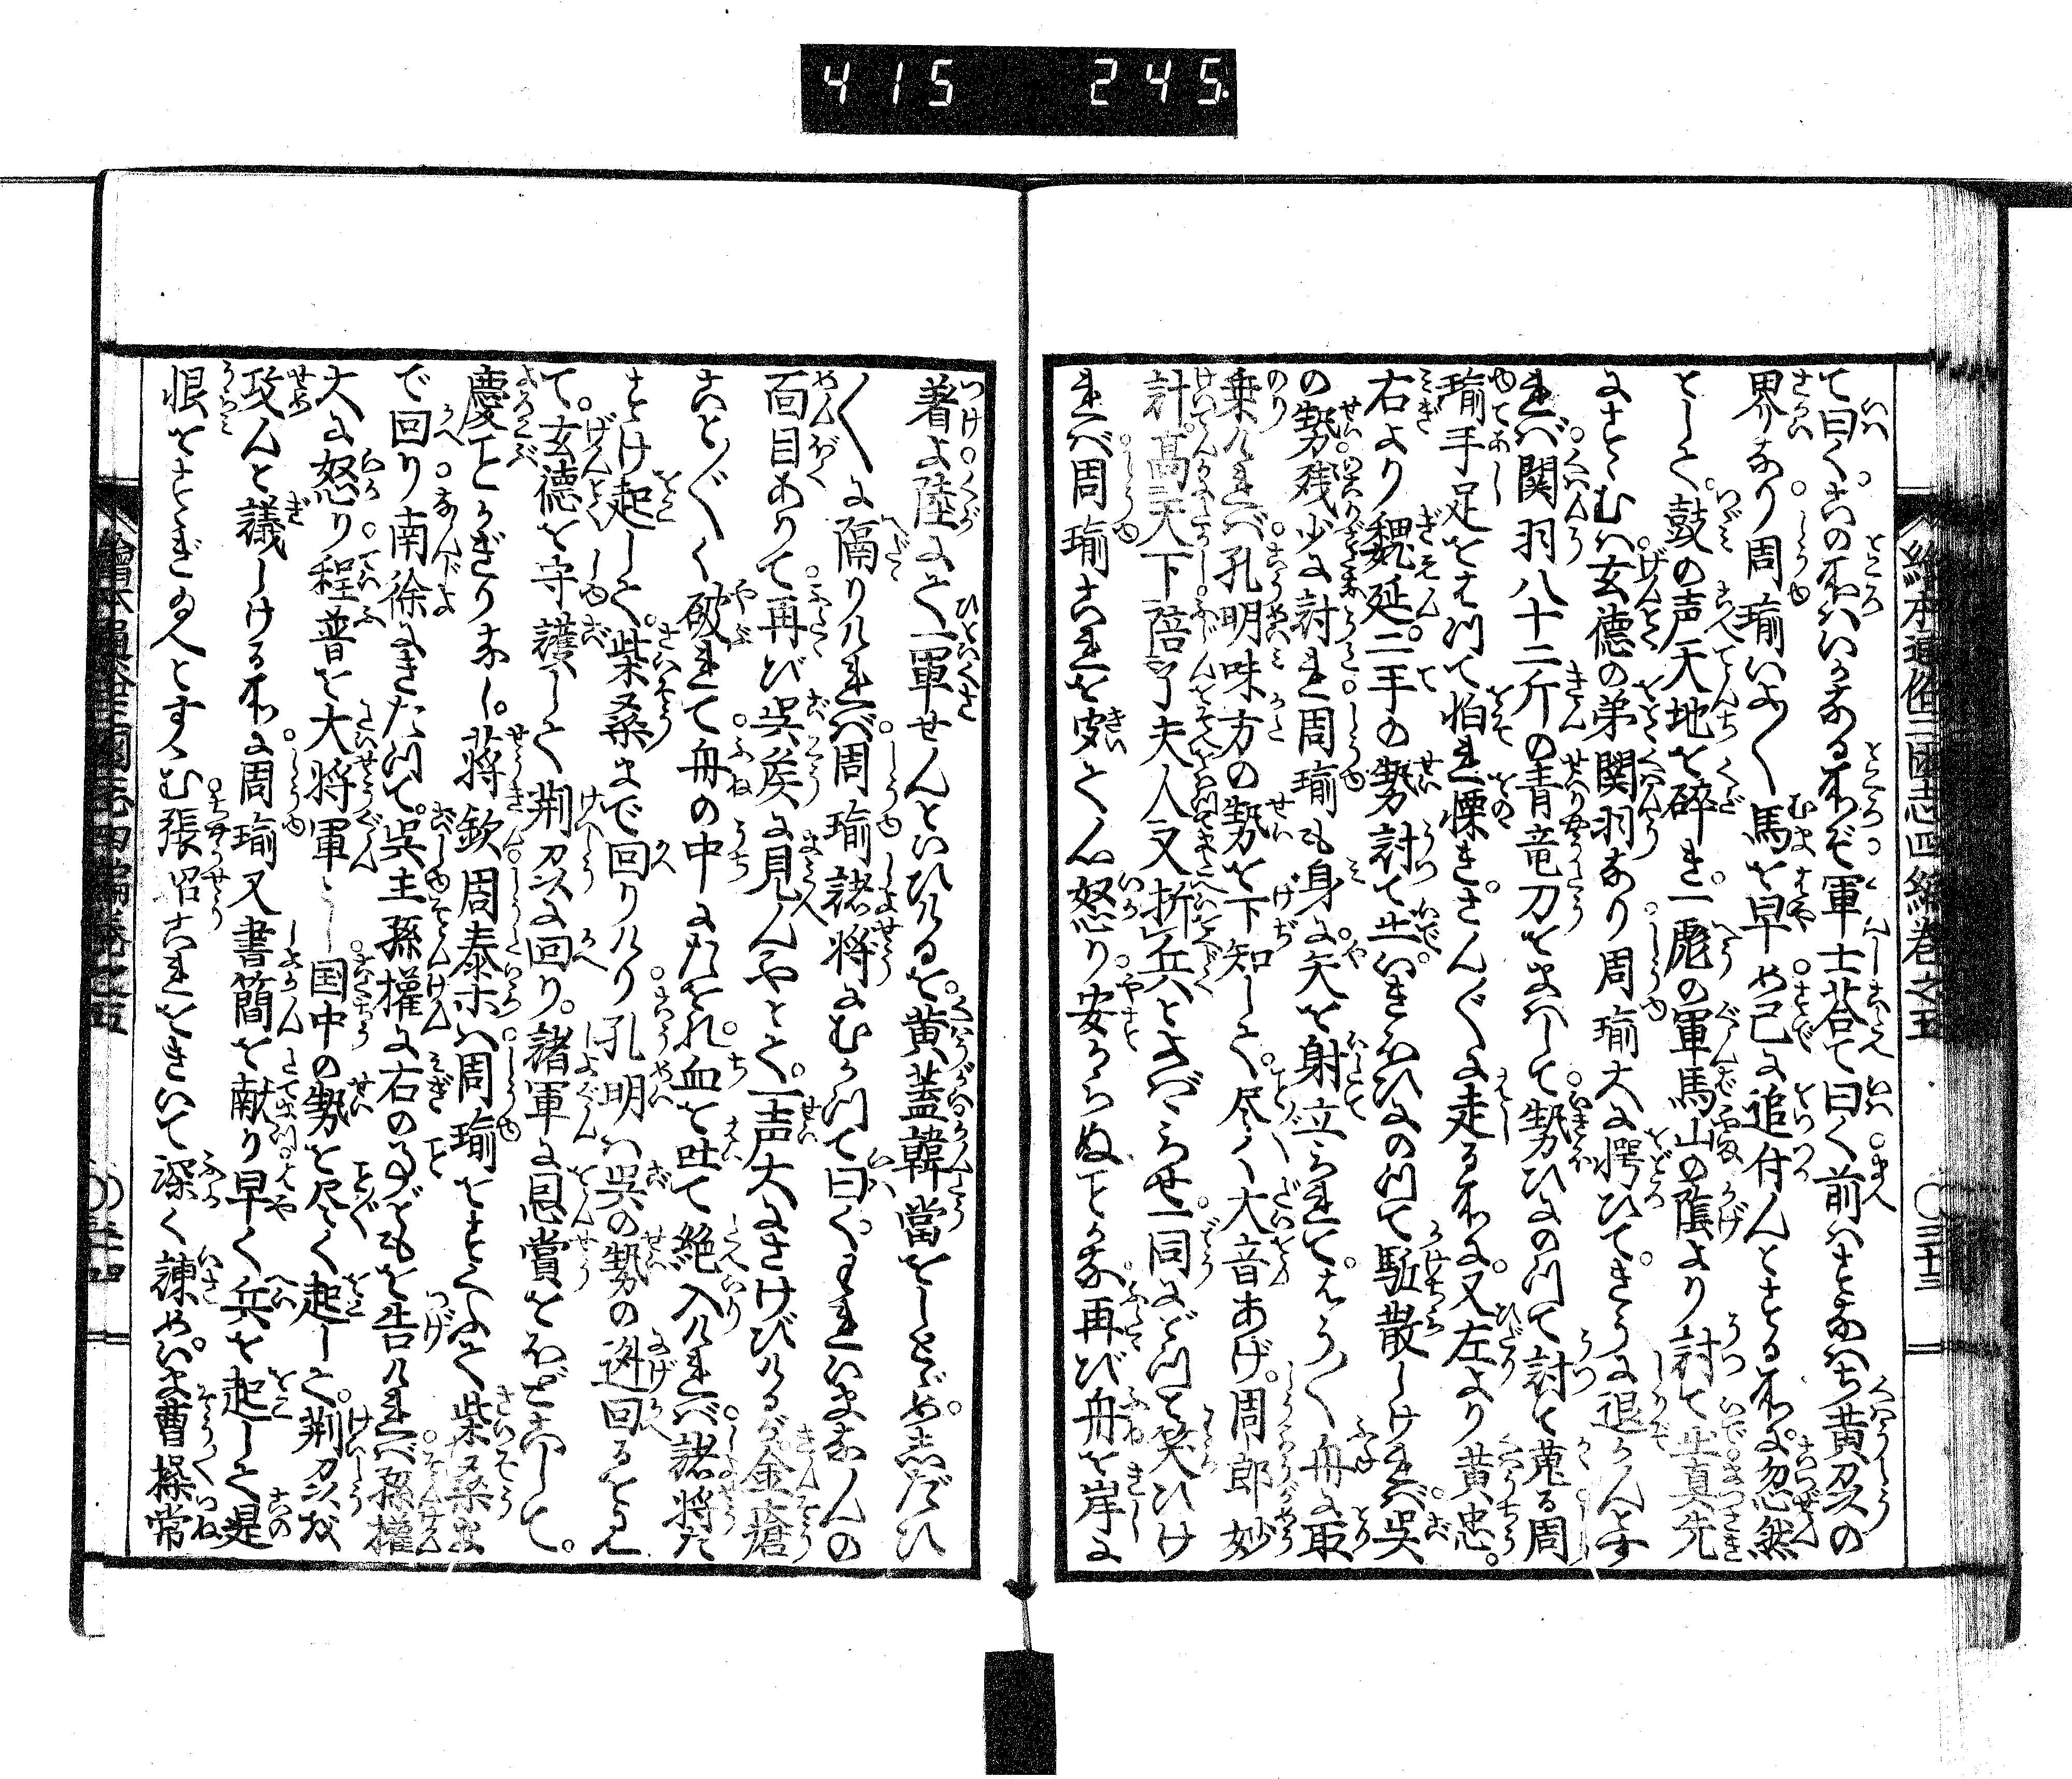 415 245.
絵本通俗三国志四編巻之五 ○三十三
て曰く。此の所ハいかなる所ぞ軍士荅て曰く前ハすなハち黄州の
界なり周瑜いよ〳〵馬を早め已に追付んとする所に忽然
として。鼓の声天地を碎き。一彪の軍馬山の蔭より討て出真先
にすゝむハ。玄徳の弟関羽なり周瑜大に愕ひて。きうに退かんとす
れバ関羽八十二斤の青竜刀をまハして勢ひにのつて討て蒐る周
瑜手足をもつて怕れ慄き。さんぐに走る所に。又左より黄忠。
右より魏延。二手の勢討て出。いきほひにのつて駈散しけれバ呉
の勢残少に討れ周瑜も身に矢を射立られて。やう〳〵舟に取
乗けれバ孔明味方の勢を下知して。尽く大音あげ。周郎妙
計高天下。陪了夫人又折兵とよバゝらせ。一同にどつと笑ひけ
れバ周瑜これを聞て心怒り安からぬことかな再び舟を岸に
着よ陸にて一軍せんといひけるを。黄蓋韓當をしとゞめ。志だひ
〳〵に隔りけれバ周瑜諸将にむかつて曰く。われいまなんの
面目ありて再び呉侯に見んやとて。一声大にさけびけるが金瘡
こと〴〵く破れて舟の中に倒れ。血を吐て絶入けれバ諸将た
すけ起して。柴桑まで回りけり孔明ハ呉の勢の迯回るを見
て。玄徳を守護して荊州に回り。諸軍に恩賞をほどこして。
慶ことかぎりなし。蒋欽周泰等ハ周瑜をすくふて柴桑ま
で回り南徐にきたつて。呉主孫權に右の事どもを告けれバ孫權
大に怒り程普を大将軍とし国中の勢を尽く起して。荊州を
攻んと議しける所に周瑜又書簡を献り早く兵を起して是
恨をすゝぎ給へとすゝむ張昭これをきいて深く諫め。いま曹操常
繪本通俗三國志四編巻之五 ○三十四